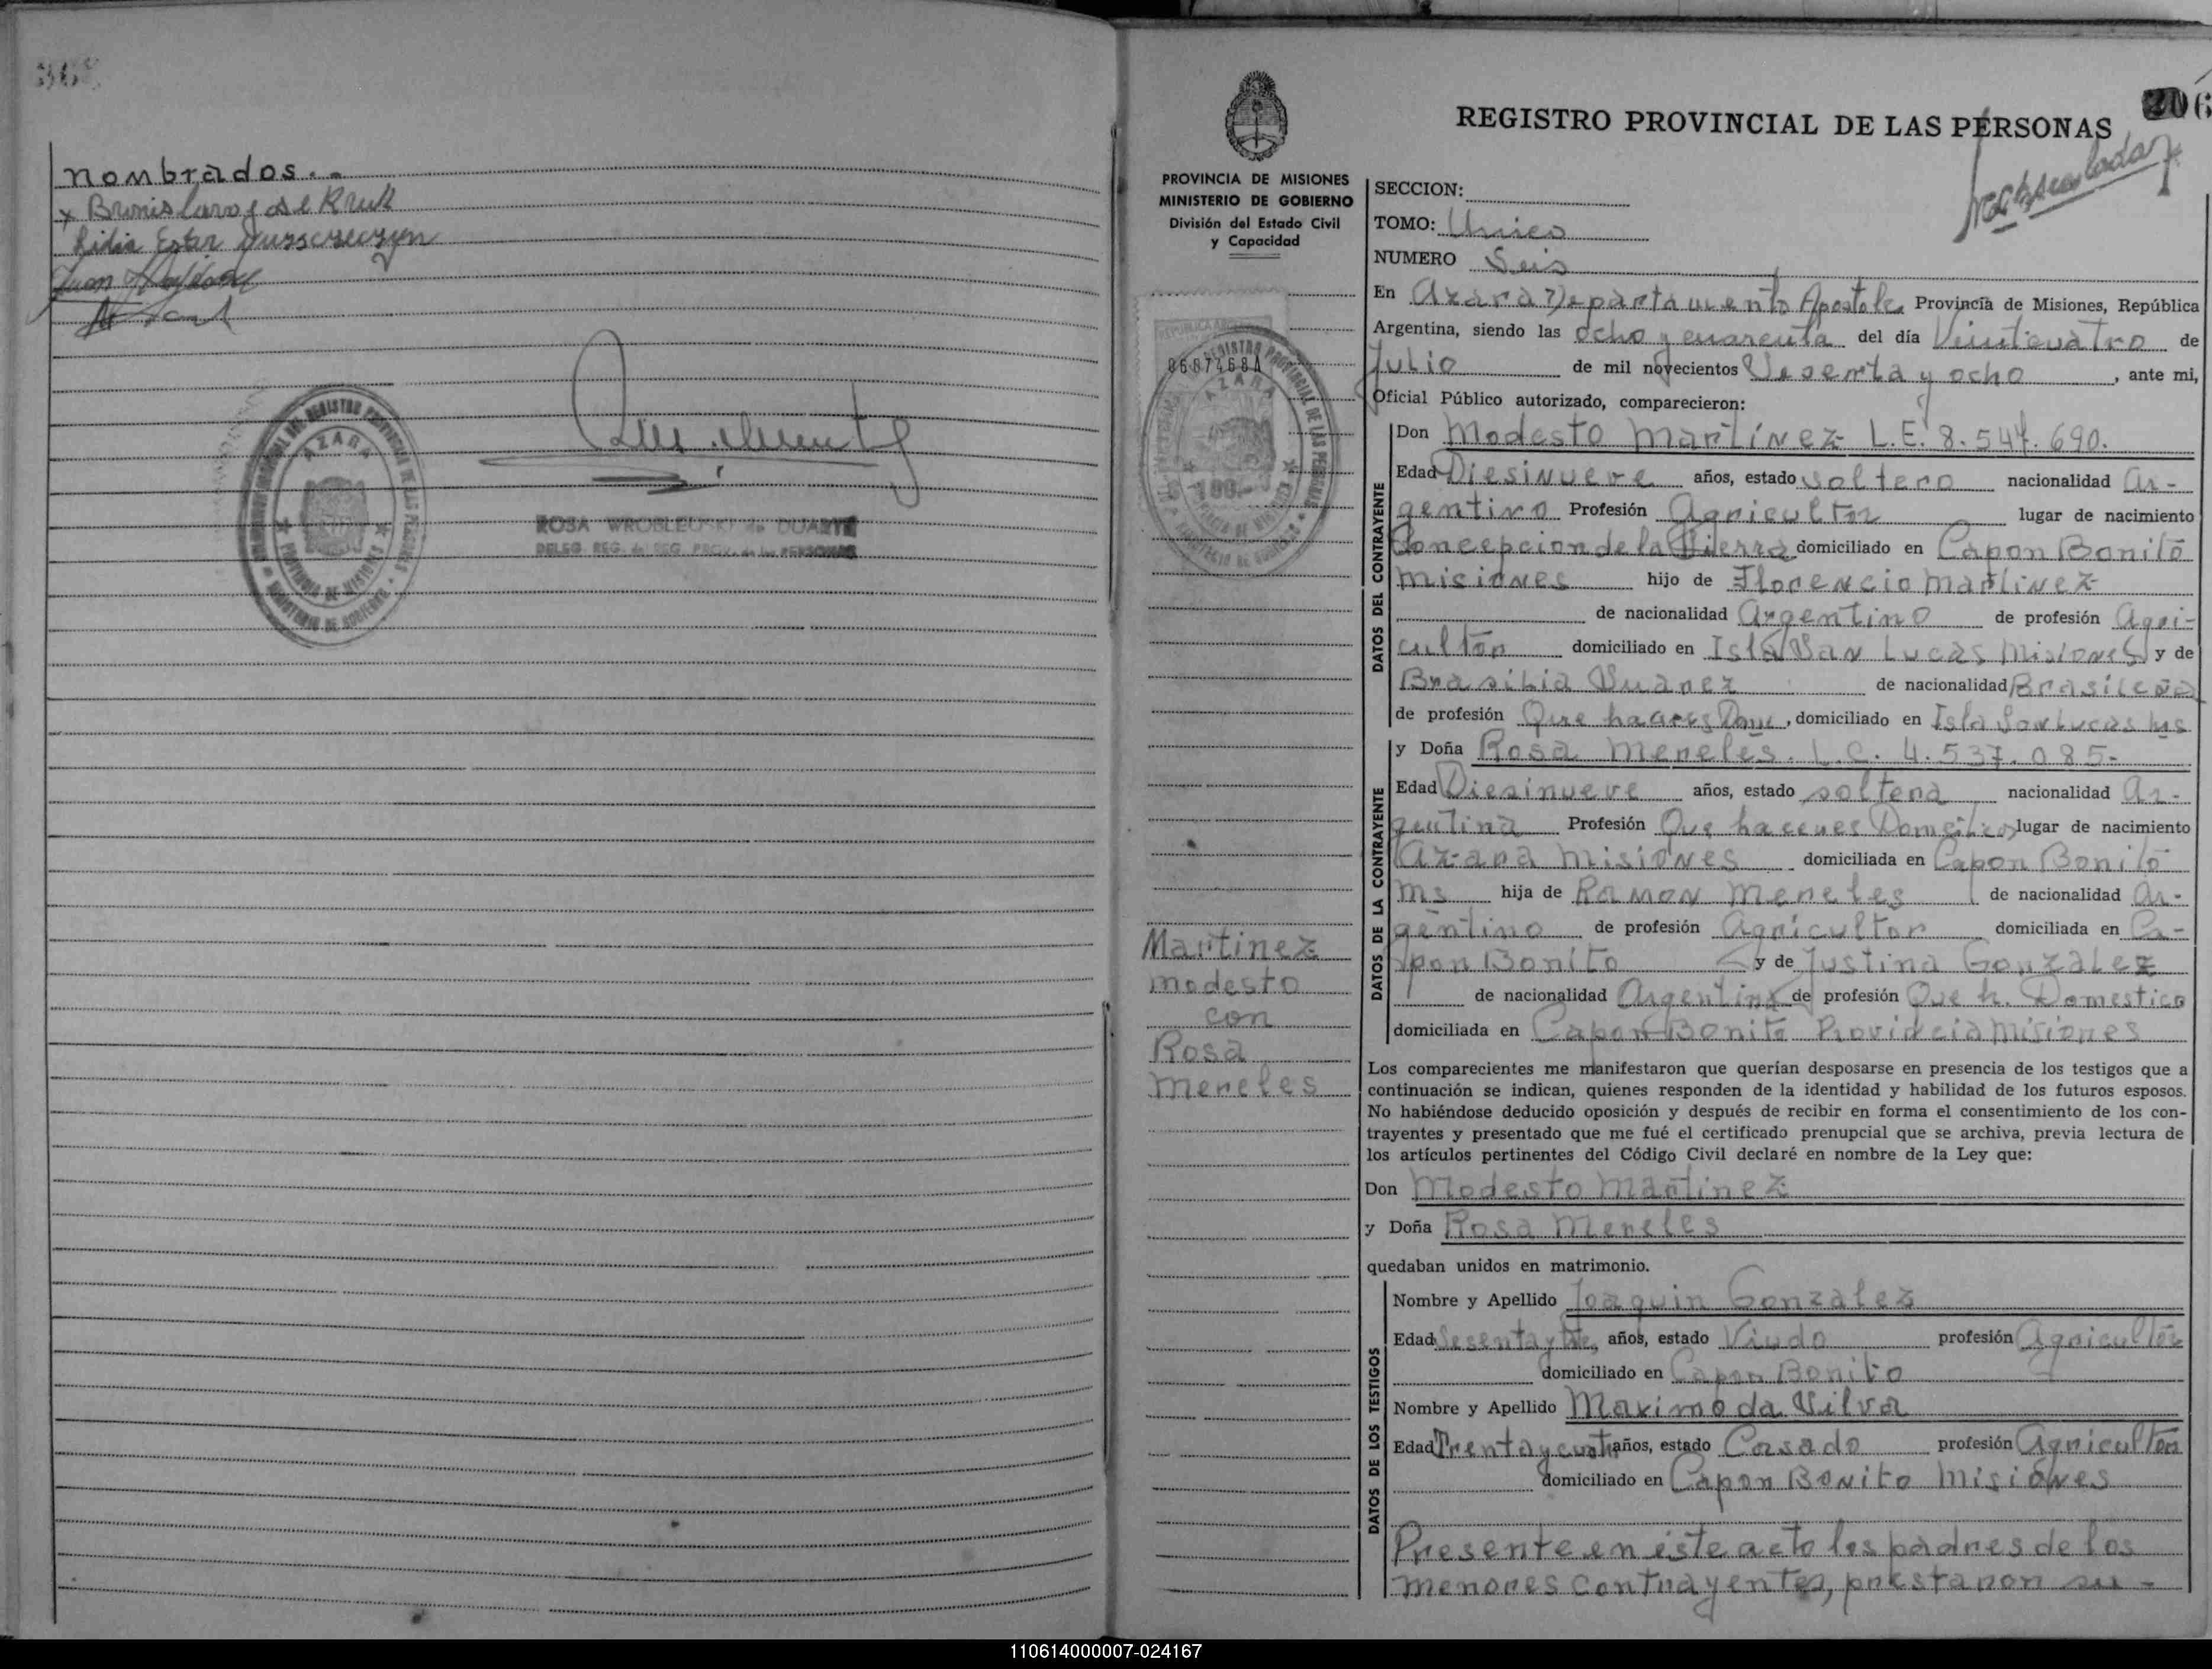 nombrados..
x Bronislavo José Kruk
Lidia Ester
Juan
REGISTRO PROVINCIAL DE LAS PERSONAS
AZARA
PROVINCIA DE MISIONES
MINISTERIO DE GOBIERNO
ROSA WROBLEUSKI de DUARTE
DELEG. REG. de REG. PROV. de las PERSONAS
206
REGISTRO PROVINCIAL DE LAS PERSONAS
PROVINCIA DE MISIONES
MINISTERIO DE GOBIERNO
División del Estado Civil
y Capacidad
REPUBLICA ARGENTINA
0687468A
REGISTRO PROVINCIAL DE LAS PERSONAS
AZARA
100
Martinez
modesto
con
Rosa
Mereles
SECCION:
TOMO: Unico
NUMERO Seis
En Azara Departamento Apostoles Provincia de Misiones, República
Argentina, siendo las ocho y cuarenta del día Veinticuatro de
Julio de mil novecientos Sesenta y ocho, ante mi,
Oficial Público autorizado, comparecieron:
DATOS DEL CONTRAYENTE
Don Modesto Martínez L.E. 8.547.690.
Edad Diesinueve años, estado soltero nacionalidad Ar-
gentino Profesión Agricultor lugar de nacimiento
Concepcion de la Sierra domiciliado en Capon Bonito
Misiones hijo de Florencio Martinez
de nacionalidad Argentino de profesión Agri-
cultor domiciliado en Isla San Lucas Misiones y de
Brasilia Suarez de nacionalidad Brasileña
de profesión Que haceres Dom, domiciliado en Isla San Lucas Ms
DATOS DE LA CONTRAYENTE
y Doña Rosa Mereles. L.C. 4.537.085-
Edad Diesinueve años, estado soltera nacionalidad Ar-
gentina Profesión Que haceres Domestico lugar de nacimiento
Azara Misiones domiciliada en Capon Bonito
Ms hija de Ramon Mereles de nacionalidad Ar-
gentino de profesión Agricultor domiciliada en Ca-
pon Bonito y de Justina Gonzalez
de nacionalidad Argentina de profesión Que h. Domestico
domiciliada en Capon Bonito Provincia Misiones
Los comparecientes me manifestaron que querían desposarse en presencia de los testigos que a
continuación se indican, quienes responden de la identidad y habilidad de los futuros esposos.
No habiéndose deducido oposición y después de recibir en forma el consentimiento de los con-
trayentes y presentado que me fué el certificado prenupcial que se archiva, previa lectura de
los artículos pertinentes del Código Civil declaré en nombre de la Ley que:
Don Modesto Martinez
y Doña Rosa Mereles
quedaban unidos en matrimonio.
DATOS DE LOS TESTIGOS
Nombre y Apellido Joaquin Gonzalez
Edad Sesenta y años, estado Viudo profesión Agricultor
domiciliado en Capon Bonito
Nombre y Apellido Maximo da Silva
Edad Trenta y cuatro años, estado Casado profesión Agricultor
domiciliado en Capon Bonito Misiones
Presente en este acto los padres de los
menores contrayentes, prestaron su-
110614000007-024167